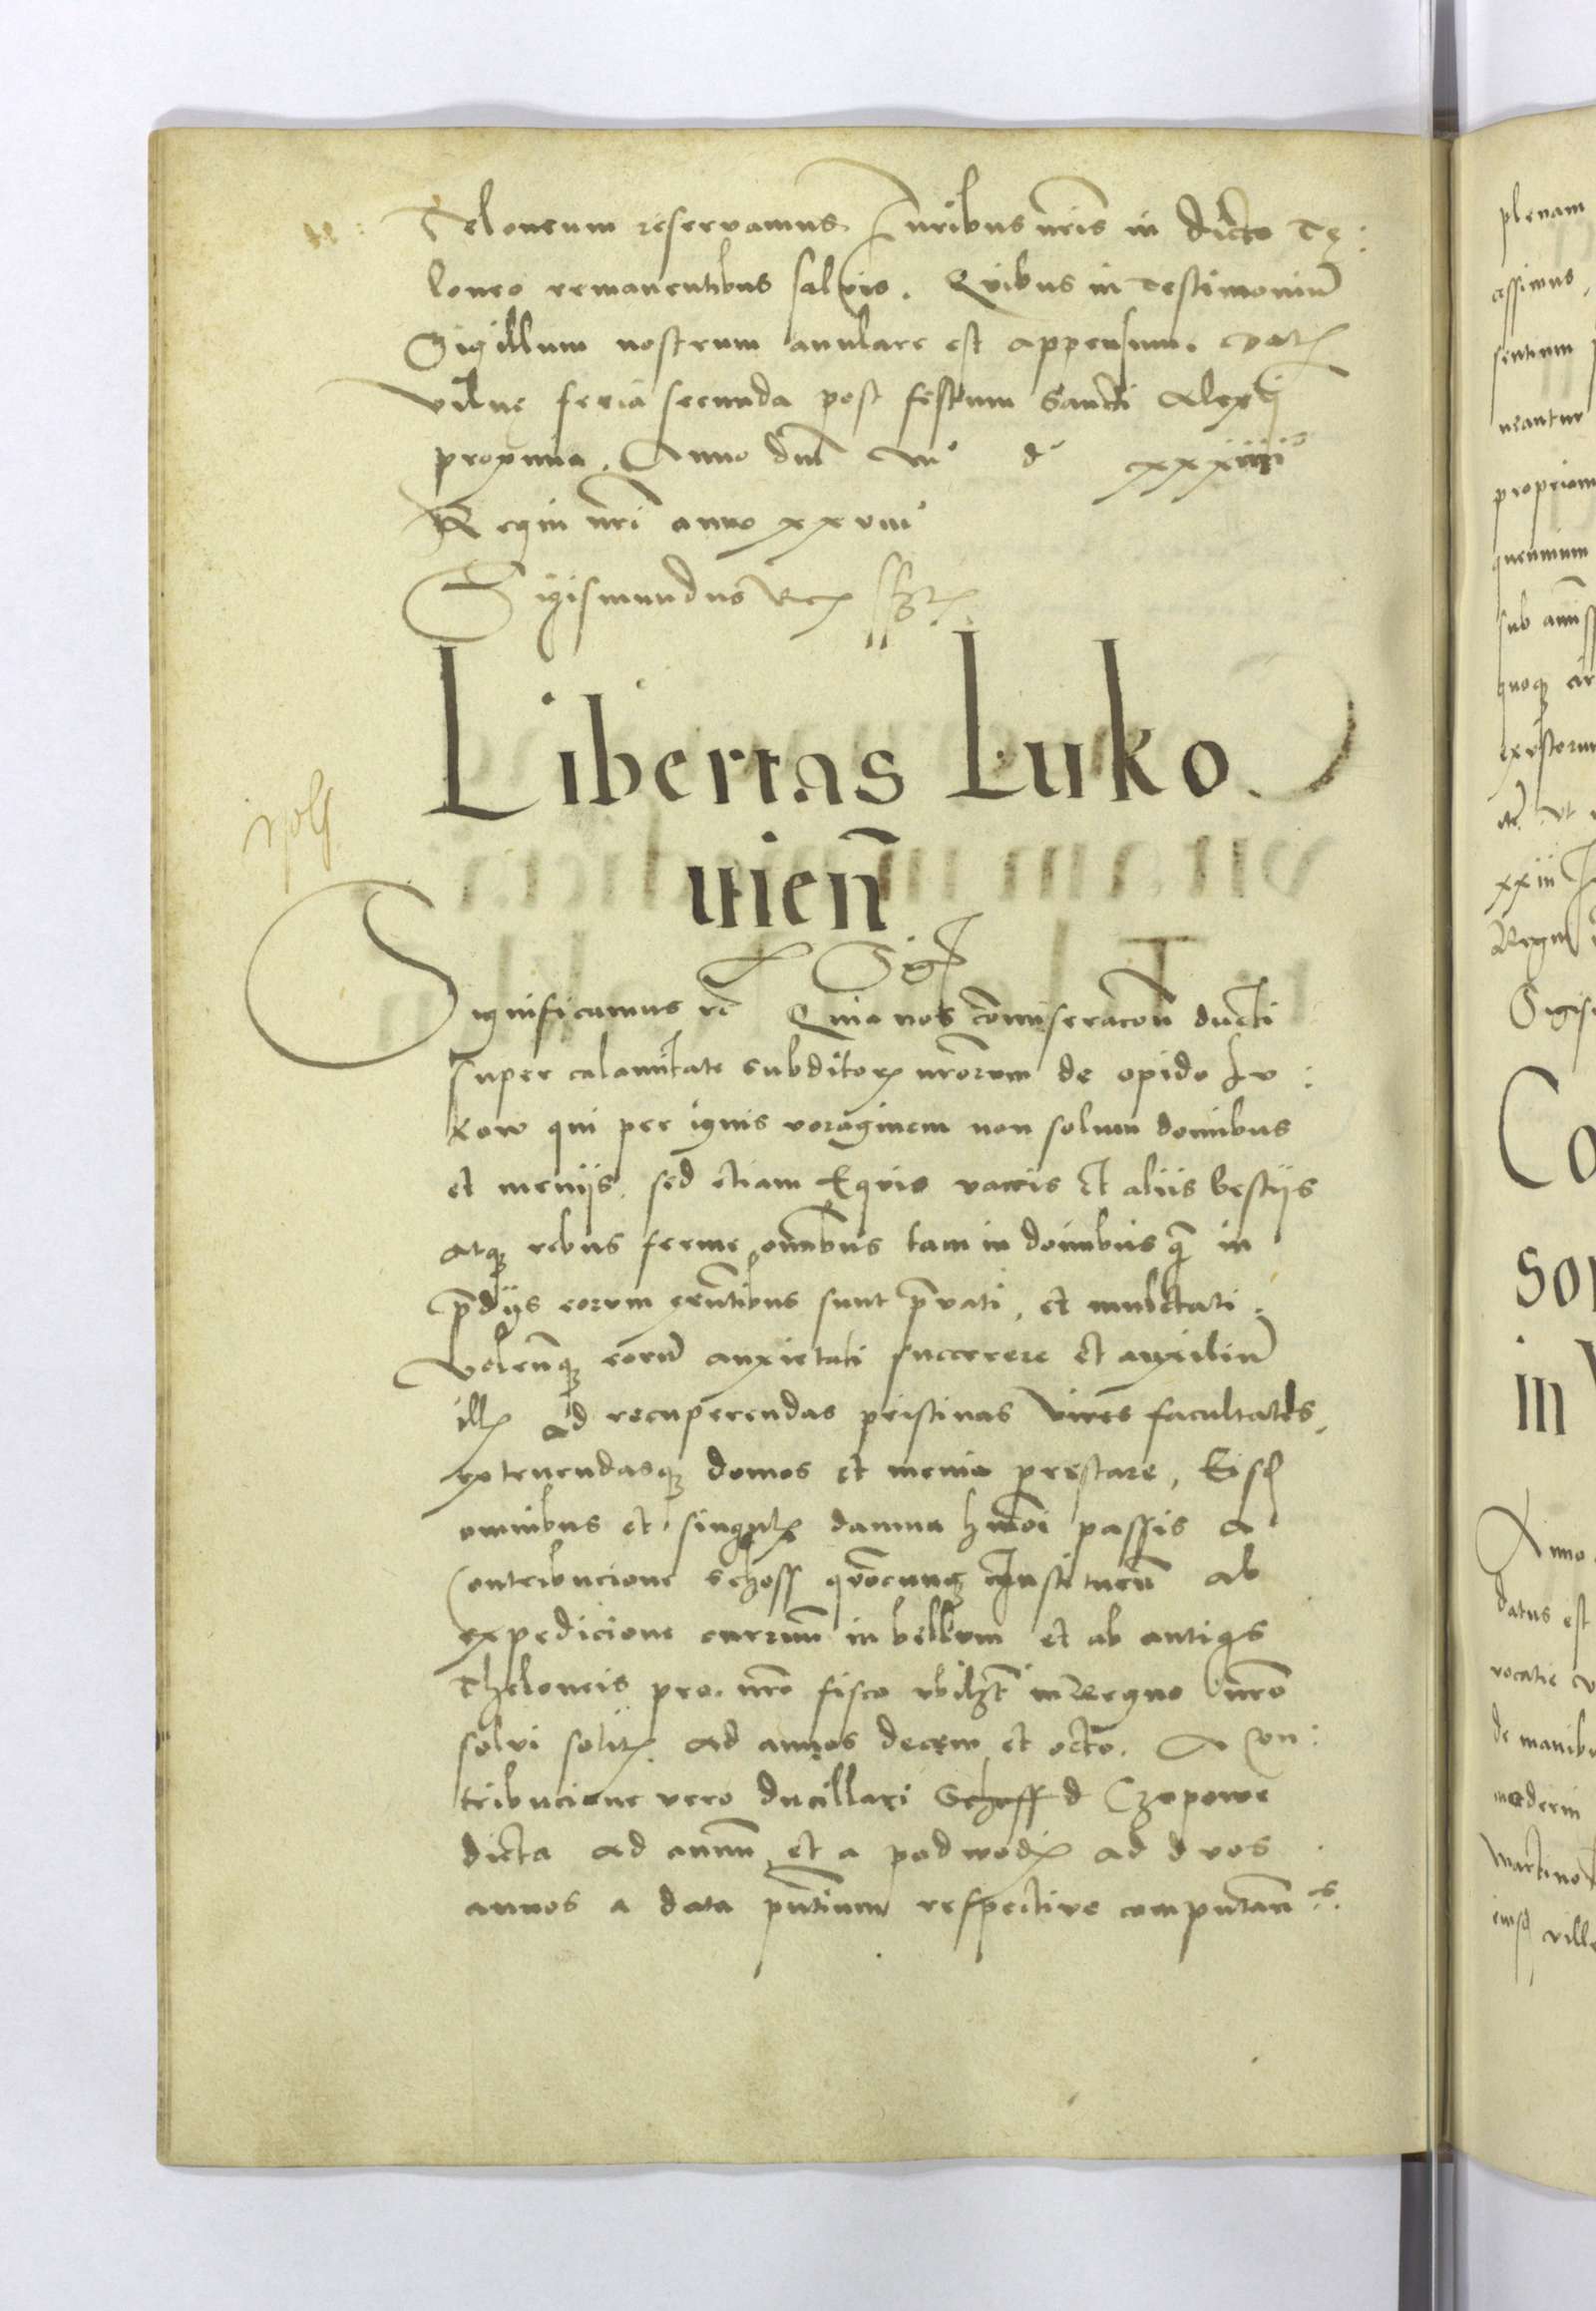 Teloneum reservamus. Iuribus nris in dicto Te:
loneo remanentibus salvis. Quibus in testimoniu
Sigillum nostrum anulare est appensum. Dat
Vilne feria secunda post festum Sancti Alexij
proxima. Anno Dni Mº dº xxxiiiiº
Regni nri anno xxviiiº
Sigismundus Rex sszt
Libertas Luko
uien
Sig
Significamus rc Quia nos comiseracon ducti
super calamitate subditor nrorum de opido Lu:
kow qui per ignis voraginem non solum domibus
et menijs, sed etiam Equis vaccis et aliis bestijs
atq rebus ferme omnibus tam in domibus q in
pdijs eorum exntibus sunt pvati, et mulctati.
Volenq eoru anxietati succerere et auxiliu
ill ad recuperendas pristinas vires facultates,
extruendasq domos et menia prestare, Eisd
omnibus et singul damna hmoi passis a
Contribucione schoss quocunq Instituen ab
expedicione curruum in bellum et ab antiqs
Theloneis pro nro fisco vbilzt in Regno nro
solvi solit ad annos decem et octo. A Con:
tribucione vero ducillari Schoss d Czopowe
dicta ad annum et a podwod ad duos
annos a data pntium respective computan
plenam
sentium
neantur
propriam
sub
quoq
xxiii
Regni
Co
so
in
Anno
datus est
vocatis
de manib
Martino
eiusd ville